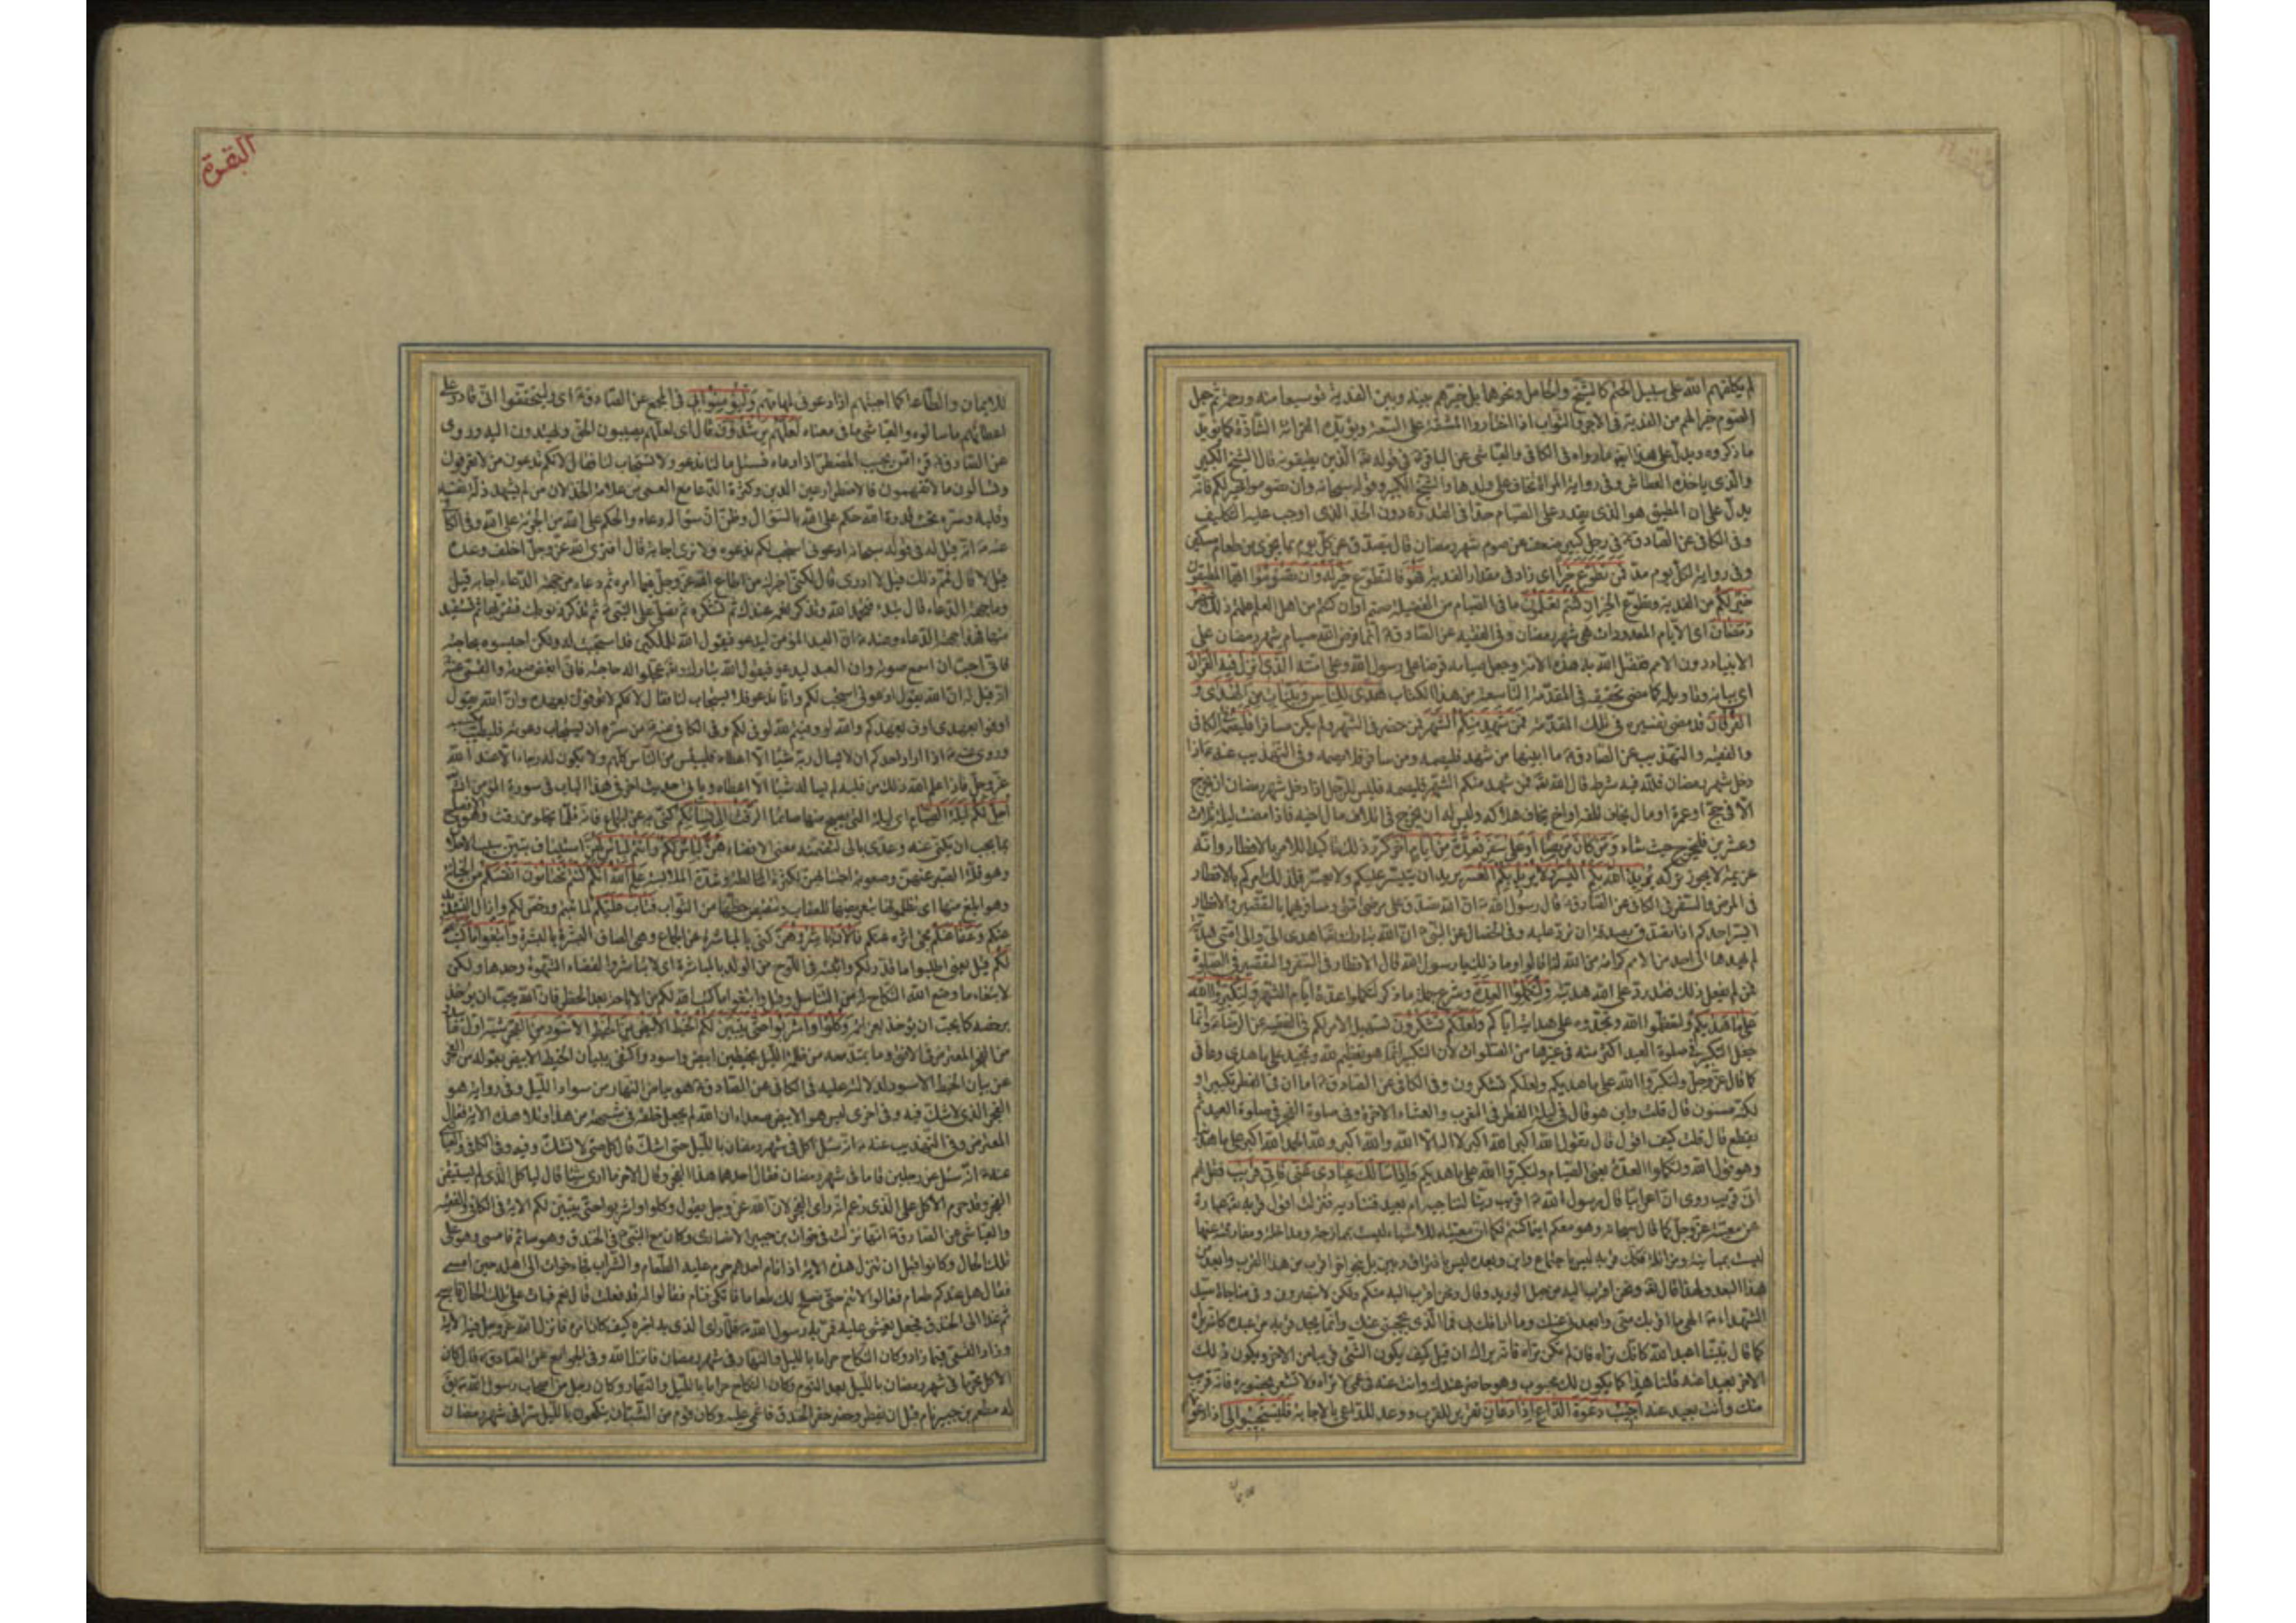 لم يكلفهم الله على سبيل الحتم كالشيخ والحامل ونحوهما بل خيرهم بينه وبين الفدية توسيعا منه ورحمة ثم جعل
الصوم خيرا لهم من الفدية في الاجر والثواب اذا اختاروا المشقة على السعة ويؤيد القرائة الشاذة
ما ذكروه ويدل على هذا ايضا ما رواه في الكافي والعياشي عن الباقر في قوله الذين يطيقونه قال الشيخ الكبير
والذى ياخذه العطاش وفى رواية المراة تخاف على ولدها والشيخ الكبير وقوله سبحانه وان تصوموا خير لكم فانه
يدل على ان المطيق هو الذى يقدر على الصيام حدا في القدرة دون الحد الذى اوجب عليه التكليف
وفى الكافى عن الصادق فى رجل كبير ضعف عن صوم شهر رمضان قال يتصدق عن كل يوم بما يجزى من طعام مسكين
وفى رواية لكل يوم مد فمن تطوع خيرا اى زاد فى مقدار الفدية فهو فالتطوع خير له وان تصوموا ايها المطيقون
خير لكم من الفدية وتطوع الخير ان كنتم تعلمون ما فى الصيام من الفضيلة او ان كنتم من اهل العلم علمتم ذلك شهر
رمضان اى الايام المعدودات هى شهر رمضان وفى الفقيه عن الصادق انما فرض الله صيام شهر رمضان على
الانبياء دون الامم ففضل الله به هذه الامة وجعل صيامه فرضا على رسول الله وعلى امته الذى انزل فيه القران
اى بيانه وتاويله كما مضى تحقيقه فى المقدمة التاسعة من هذا الكتاب هدى للناس وبينات من الهدى و
الفرقان قد مضى تفسيره فى تلك المقدمة فمن شهد منكم الشهر فمن حضر فى الشهر ولم يكن مسافرا فليصمه الكافى
والفقيه والتهذيب عن الصادق ما ابينها من شهد فليصمه ومن سافر فلا يصمه وفى التهذيب عنه اذا
دخل شهر رمضان فلله فيه شرط قال الله فمن شهد منكم الشهر فليصمه فليس للرجل اذا دخل شهر رمضان ان يخرج
الا فى حج او عمرة او مال يخاف تلفه او اخ يخاف هلاكه وليس له ان يخرج فى اتلاف مال اخيه فاذا مضت ليلة ثلاث
وعشرين فليخرج حيث شاء ومن كان مريضا او على سفر فعدة من ايام اخر كرر ذلك تاكيدا للامر بالافطار وانه
عزيمة لا يجوز تركه يريد الله بكم اليسر ولا يريد بكم العسر يريد ان ييسر عليكم ولا يعسر فلذلك امركم بالافطار
فى المرض والسفر فى الكافى عن الصادق قال رسول الله ان الله تصدق على مرضى امتى ومسافريها بالتقصير والافطار
ايسر احدكم اذا تصدق بصدقة ان ترد عليه وفى الخصال عن النبى ان الله تبارك وتعالى اهدى الى والى امتى هدية
لم يهدها الى احد من الامم كرامة من الله لنا قالوا وما ذلك يا رسول الله قال الافطار فى السفر والتقصير فى الصلوة
فمن لم يفعل ذلك فقد رد على الله هديته ولتكملوا العدة وشرع جملة ما ذكر لتكملوا عدة ايام الشهر ولتكبروا الله
على ما هديكم ولتعظموا الله وتمجدوه على هدايته اياكم ولعلكم تشكرون تسهيل الامر لكم فى الفقيه عن الرضا وانما
جعل التكبير فى صلوة العيد اكثر منه فى غيرها من الصلوات لان التكبير انما هو تعظيم لله وتمجيد على ما هدى وعافى
كما قال عز وجل ولتكبروا الله على ما هديكم ولعلكم تشكرون وفى الكافى عن الصادق اما ان فى الفطر تكبيرا و
لكنه مسنون قال قلت واين هو قال فى ليلة الفطر فى المغرب والعشاء الاخرة وفى صلوة الفجر فى صلوة العيد ثم
يقطع قال قلت كيف اقول قال تقول الله اكبر الله اكبر لا اله الا الله والله اكبر ولله الحمد الله اكبر على ما هدانا
وهو قول الله ولتكملوا العدة يعنى الصيام ولتكبروا الله على ما هديكم واذا سالك عبادى عنى فانى قريب فقل لهم
انى قريب روى ان اعرابيا قال لرسول الله اقريب ربنا فنناجيه ام بعيد فنناديه فنزلت اقول قربه عبارة
عن معيته عز وجل كما قال سبحانه وهو معكم اينما كنتم فكما ان معيته للاشياء ليست بممازجة ومداخلة ومفارقته عنها
ليست بمباينة ومزايلة فكذلك قربه ليس باجتماع واين وبعده ليس بافتراق وبين بل بنحو اقرب من هذا القرب وابعد من
هذا البعد ولهذا قال ونحن اقرب اليه من حبل الوريد وقال ونحن اقرب اليه منكم ولكن لا تبصرون وفى مناجاة سيد
الشهداء الهى ما اقربك منى وابعدنى عنك وما ارافك بى فما الذى يحجبنى عنك وانما يجد قربه من عبده كانه يراه
كما قال نبينا اعبد الله كانك تراه فان لم تكن تراه فانه يراك ان قيل كيف يكون الشىء قريبا من الاخر ويكون ذلك
الاخر بعيدا عنه قلنا هذا كما يكون لك محبوب وهو حاضر عندك وانت عنه فى عمى لا تراه ولا تشعر بحضوره فانه قريب
منك وانت بعيد عنه اجيب دعوة الداع اذا دعان تقرير للقرب ووعد للداعى بالاجابة فليستجيبوا لى اذا دعوتهم
للايمان
البقرة
للايمان والطاعة كما اجبتهم اذا دعونى لمهامهم وليؤمنوا بى فى المجمع عن الصادق اى وليتحققوا انى قادر على
اعطائهم ما سالوه والعياشى ما فى معناه لعلهم يرشدون قال اى لعلهم يصيبون الحق ويهتدون اليه وروى
عن الصادق امن يجيب المضطر اذا دعاه فسئل ما لنا ندعو ولا يستجاب لنا فقال لانكم تدعون من لا تعرفون
وتسالون ما لا تفهمون فالاضطرار عين الدين وكثرة الدعا مع العمى من علامة الخذلان من لم يشهد ذلة نفسه
وقلبه وسره تحت قدرة الله حكم على الله بالسؤال وظن ان سؤاله دعاء والحكم على الله من الجرئة على الله وفى الكافى
عنه انه قيل له فى قوله سبحانه ادعونى استجب لكم ندعوه ولا نرى اجابة قال افترى الله عز وجل اخلف وعده
قيل لا قال فمم ذلك قيل لا ادرى قال لكنى اخبرك من اطاع الله عز وجل فيما امره ثم دعاه من جهة الدعاء اجابه قيل
وما جهة الدعاء قال تبدء فتحمد الله وتذكر نعمه عندك ثم تشكره ثم تصلى على النبى ثم تذكر ذنوبك فتقر بها ثم تستعيذ
منها فهذا جهة الدعاء وعنه ان العبد المؤمن ليدعو فيقول الله للملكين قد استجبت له ولكن احبسوه بحاجته
فانى احب ان اسمع صوته وان العبد ليدعو فيقول الله تبارك وتعالى عجلوا له حاجته فانى ابغض صوته والقمى عنه
انه قيل له ان الله يقول ادعونى استجب لكم وانا ندعو فلا يستجاب لنا فقال لانكم لا توفون لله بعهده وان الله يقول
اوفوا بعهدى اوف بعهدكم والله لو وفيتم لله لوفى لكم وفى الكافى عنه من سره ان يستجاب دعوته فليطب مكسبه
وروى عنه اذا اراد احدكم ان لا يسال ربه شيئا الا اعطاه فليياس من الناس كلهم ولا يكون له رجاء الا عند الله
عز وجل فاذا علم الله ذلك من قلبه لم يساله شيئا الا اعطاه وياتى حديث اخر فى هذا الباب فى سورة المؤمن
احل لكم ليلة الصيام اى ليلة التى يصبح منها صائما الرفث الى نسائكم كنى به عن الجماع فانه قلما يخلو من رفث وهو الافصاح
بما يجب ان يكنى عنه وعدى بالى لتضمنه معنى الافضاء هن لباس لكم وانتم لباس لهن استيناف يبين سبب الاحلال
وهو قلة الصبر عنهن وصعوبة اجتنابهن لكثرة المخالطة وشدة الملابسة علم الله انكم كنتم تختانون انفسكم من الخيانة
وهو ابلغ منها اى تظلمونها بتعريضها للعقاب وتنقيص حظها من الثواب فتاب عليكم لما تبتم ورخص لكم وازال التشديد
عنكم وعفا عنكم محى اثره عنكم فالان باشروهن كنى بالمباشرة عن الجماع وهى الصاق البشرة بالبشرة وابتغوا ما كتب
لكم قيل يعنى اطلبوا ما قدر لكم واثبته فى اللوح من الولد بالمباشرة اى لا تباشروا لقضاء الشهوة وحدها ولكن
لابتغاء ما وضع الله النكاح له من التناسل وقيل وابتغوا ما كتب الله لكم من الاباحة بعد الحظر فان الله يحب ان يؤخذ
برخصه كما يحب ان يؤخذ بعزائمه وكلوا واشربوا حتى يتبين لكم الخيط الابيض من الخيط الاسود من الفجر شبه اول
من الفجر المعترض فى الافق وما يمتد معه من ظلمة الليل بخيطين ابيض واسود واكتفى ببيان الخيط الابيض بقوله من الفجر
عن بيان الخيط الاسود لدلالته عليه فى الكافى عن الصادق هو بياض النهار من سواد الليل وفى رواية هو
الفجر الذى لا شك فيه وفى اخرى ليس هو الابيض صعداء ان الله لم يجعل خلقه فى شبهة من هذا وتلا هذه الاية فقال
المعترض وفى التهذيب عنه انه سئل اكل فى شهر رمضان بالليل حتى اشك قال كل حتى لا تشك وفيه وفى الكافى والعياشى
عنه انه سئل عن رجلين قاما فى شهر رمضان فقال احدهما هذا الفجر وقال الاخر ما ارى شيئا قال لياكل الذى لم يستيقن
الفجر وقد حرم الاكل على الذى زعم انه راى الفجر لان الله عز وجل يقول وكلوا واشربوا حتى يتبين لكم الاية فى الكافى والفقيه
والعياشى عن الصادق انها نزلت فى خوات بن جبير الانصارى وكان مع النبى فى الخندق وهو صائم فامسى وهو على
تلك الحال وكانوا قبل ان تنزل هذه الاية اذا نام احدهم حرم عليه الطعام والشراب فجاء خوات الى اهله حين امسى
فقال هل عندكم طعام فقالوا لا تنم حتى نصلح لك طعاما فاتكى فنام فقالوا له قد فعلت قال نعم فبات على تلك الحال فاصبح
ثم غدا الى الخندق فجعل يغشى عليه فمر به رسول الله فلما راى الذى به اخبره كيف كان امره فانزل الله عز وجل فيه الاية
وزاد القمى فيما زاد وكان النكاح حراما بالليل والنهار فى شهر رمضان فانزل الله وفى الجوامع عن الصادق قال كان
الاكل محرما فى شهر رمضان بالليل بعد النوم وكان النكاح حراما بالليل والنهار وكان رجل من اصحاب رسول الله يقال
له مطعم بن جبير نام قبل ان يفطر وحضر حفر الخندق فاغمى عليه وكان قوم من الشبان ينكحون بالليل سرا فى شهر رمضان